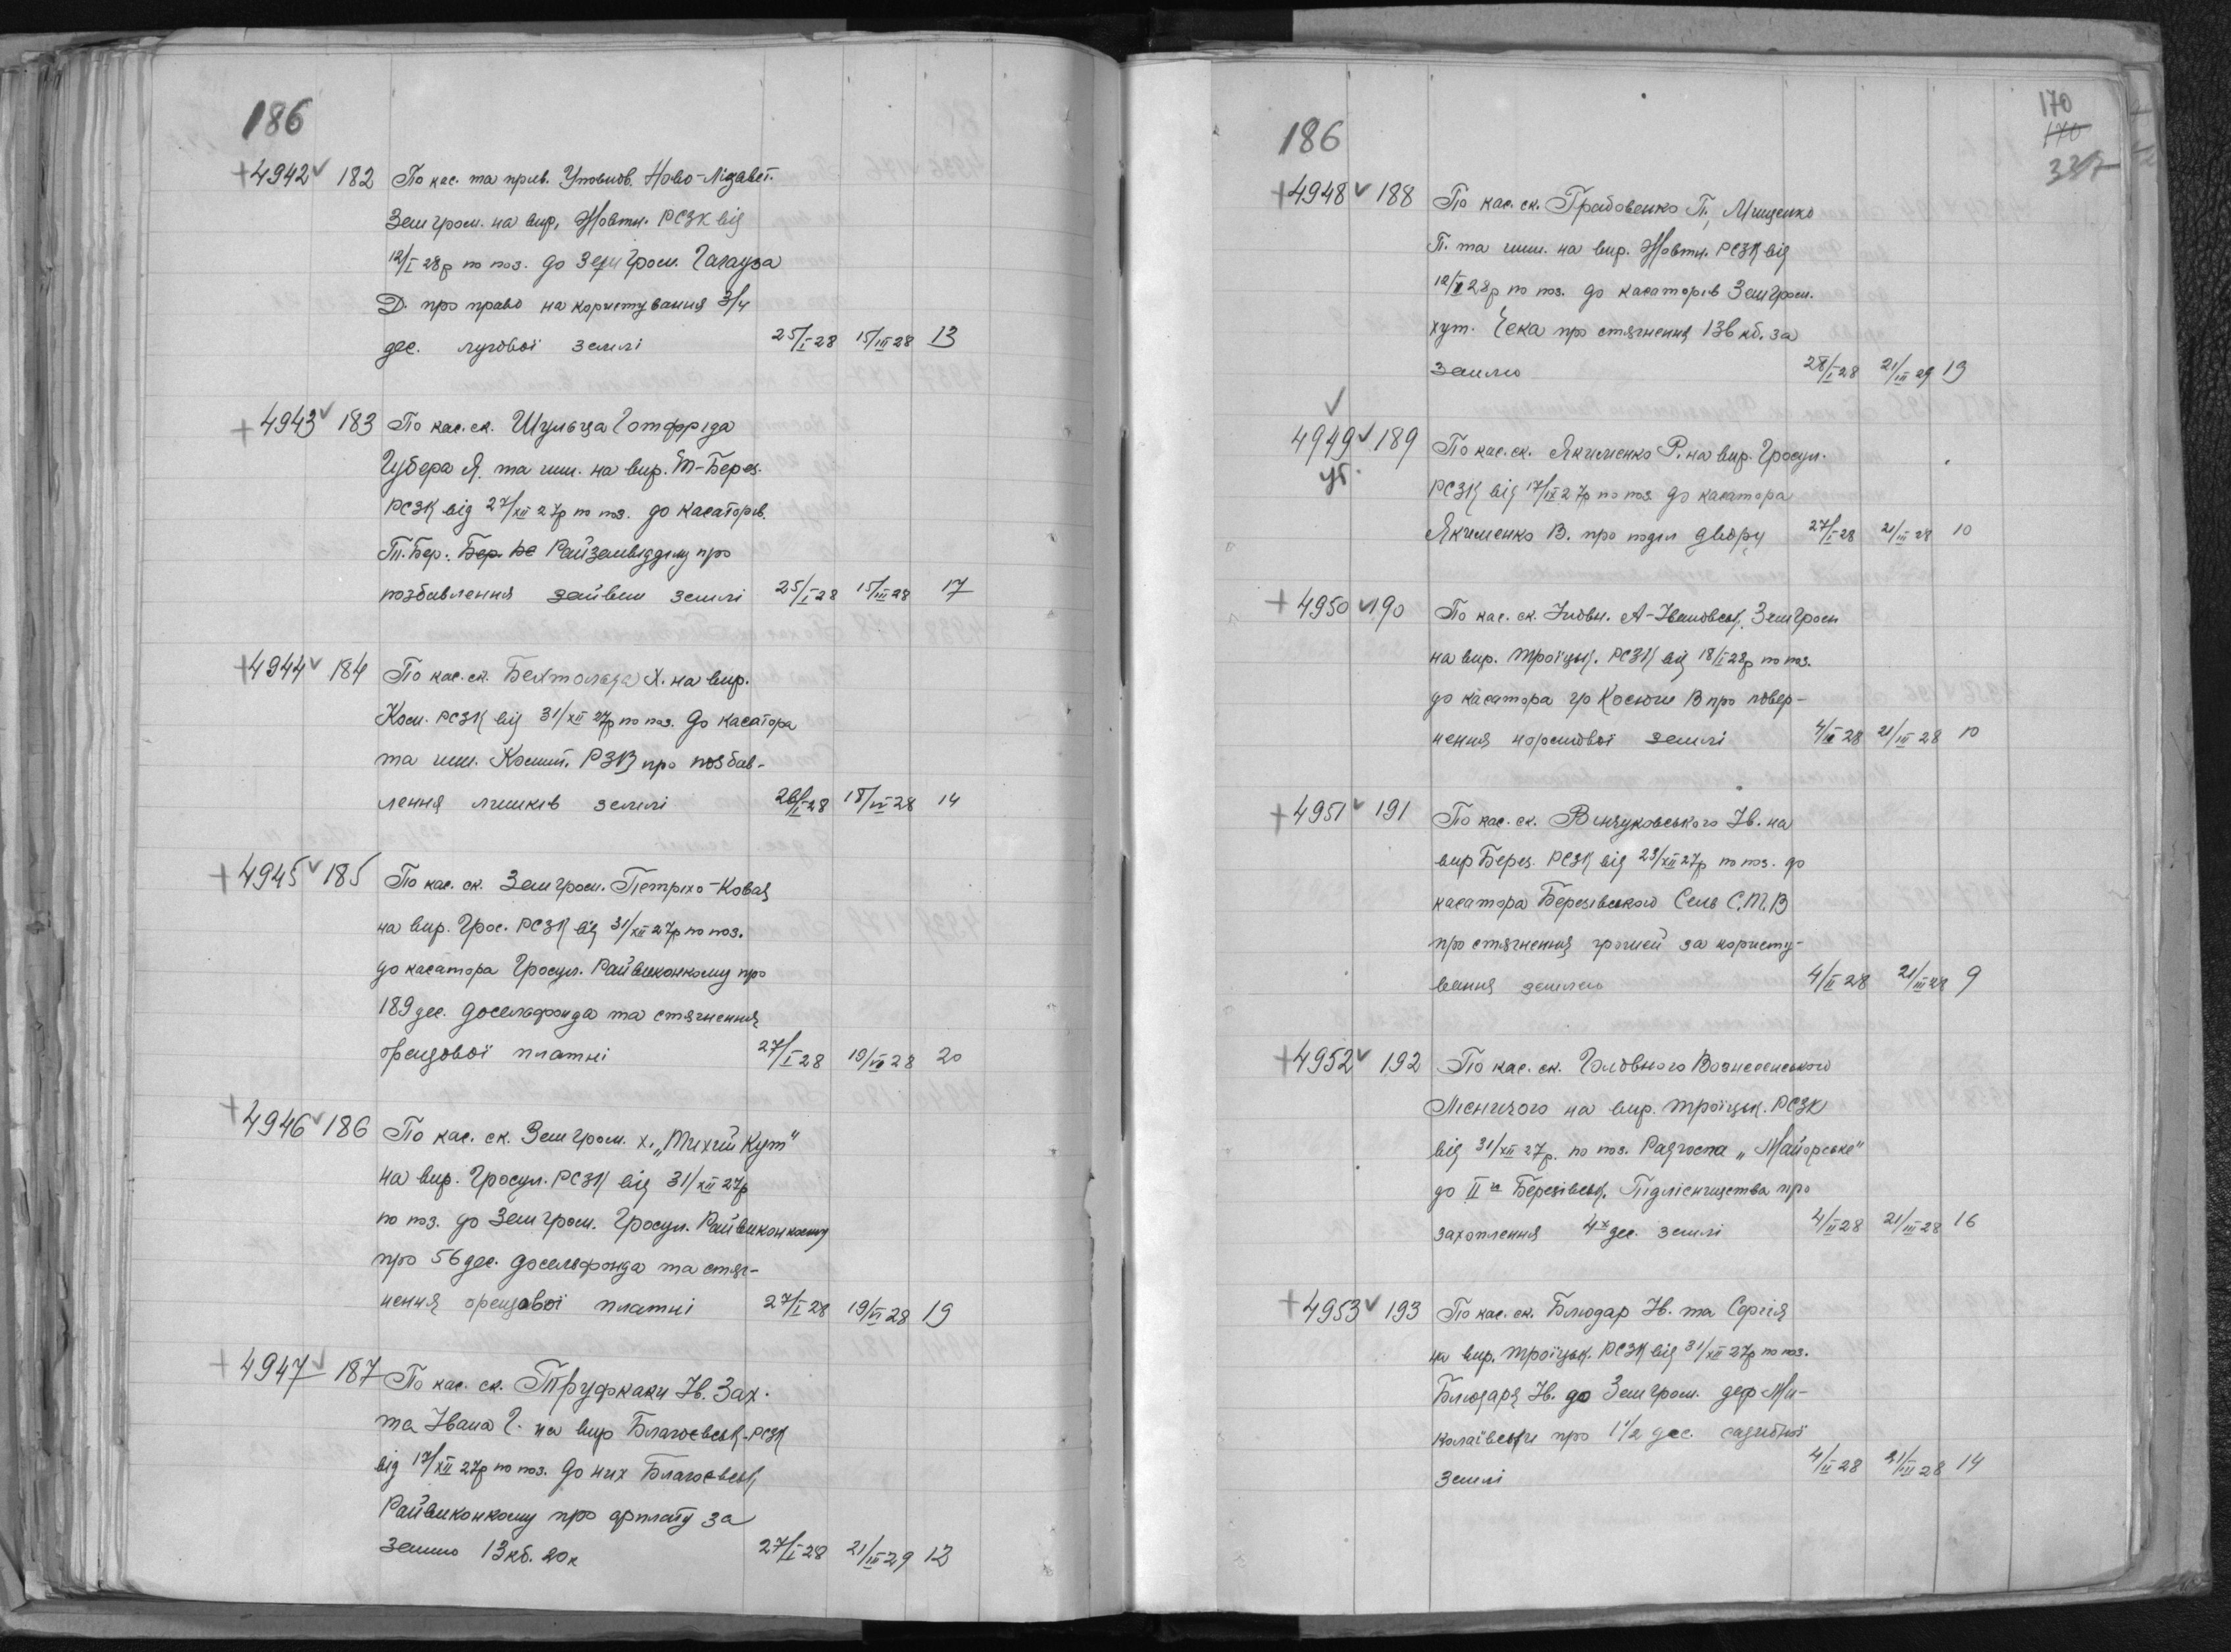 186
+4942 ✓ 182 По кас. та прив. Уповнов. Ново-Лізавет.
Земгром. на вир. Жовтн. РСЗК від
12/I 28р по поз. до Земгром. Гагауза
Д. про право на користування 3/4
дес. лугової землі 25/I 28 15/III 28 13
+4943 ✓ 183 По кас. ск. Шульца Готфріда
Губера Я. та инш. на вир. Т-Берез.
РСЗК від 27/XII 27р по поз. до касаторів.
Т.Бер. Райземвідділу про
позбавлення зайвин землі 25/I 28 15/III 28 17
+4944 ✓ 184 По кас. ск. Бехтольда Х. на вир.
Ком. РСЗК від 31/XII 27р по поз. до касатора
та инш. РЗВ про позбав-
лення лишків землі 26/I 28 18/VI 28 14
+4945 ✓ 185 По кас. ск. Земгром. Петріхо-Ковая
на вир. Грос. РСЗК від 31/XII 27р по поз.
до касатора Гросул. Райвиконкому про
189 дес. досельфонда та стягнення
орендової платні 27/I 28 19/VI 28 20
+4946 ✓ 186 По кас. ск. Земгром. х. „Тихий Кут"
на вир. Гросул. РСЗК від 31/XII 27р
по поз. до Земгром. Гросул. Райвиконкому
про 56 дес. досельфонда та стяг-
нення орендової платні 27/I 28 19/VI 28 19
+4947 ✓ 187 По кас. ск. Труфкаки Ів. Зах.
та Івана Г. на вир Благоєвськ. РСЗК
від 17/XII 27р по поз. до них Благоєвськ.
Райвиконкому про орплату за
землю 13 кб. 20 к 27/I 28 21/III 29 12
170
170
337
186
+4948 ✓ 188 По кас. ск. Грабовенко П., Мищенко
П. та инш. на вир. Жовтн. РСЗК від
12/I 28р по поз. до касаторів Земгром.
хут. Чека про стягнення 136 кб. за
землю 28/I 28 21/III 29 19
✓
4949 ✓ 189 По кас. ск. Якименко Р. на вир. Гросул.
РСЗК від 17/IX 27р по поз до касатора
Якименко В. про поділ двору 27/I 28 21/III 28 10
+4950 ✓ 190 По кас. ск. Уповн. А-Івановськ. Земгром
на вир. Троїцьк. РСЗК від 18/I 28р по поз.
до касатора гр Косюги В про повер-
нення нормової землі 4/II 28 21/III 28 10
+4951 ✓ 191 По кас. ск. Винцуковського Ів. на
вир Берез. РСЗК від 23/XII 27р по поз. до
касатора Березівською Сель С.Т.В
про стягнення грошей за користу-
вання землею 4/II 28 21/III 28 9
+4952 ✓ 192 По кас. ск. Головного Вознесенського
Лісничого на вир. Троїцьк. РСЗК
від 31/XII 27р. по поз. Радгоспа „Майорське"
до II го Березівськ. Підлісництва про
захоплення 4х дес. землі 4/II 28 21/III 28 16
+4953 ✓ 193 По кас. ск. Блюдар Ів. та Сергія
на вир. Троїцьк. РСЗК від 31/XII 27р по поз.
Блюдаря Ів. до Земгром. дер Ми-
колаївськи про 1 1/2 дес. садибної
землі 4/II 28 21/III 28 14